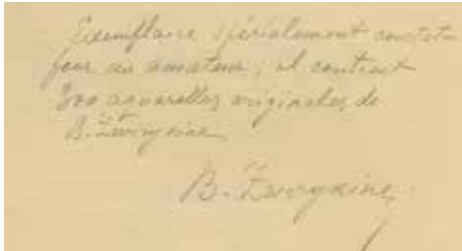 Exemplaire spécialement constitué
pour un amateur; il contient
300 aquarelles originales de
B. Zworykine
B. Zworykine